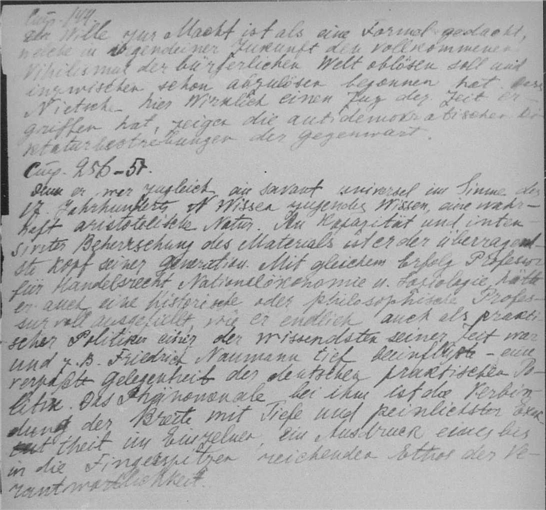 Стр. 199.
der Wille zur Macht ist als eine Formel gedacht,
welche in irgendeiner Zukunft den vollkommenen
Nihilismus der bürgerlichen Welt ablösen soll und
inzwischen schon abzulösen begonnen hat. Dass
Nietsche hier wirklich einen Zug der Zeit er-
griffen hat, zeigen die antidemokratischen Di-
ktaturbestrebungen der Gegenwart.
Стр. 256-57.
Denn er war zugleich ein savant universel im Sinne des
17. Jahrhunderts, Wissen zeugendes Wissen, eine wahr-
haft aristotelische Natur. An Kapazität und inten-
sivster Beherrschung des Materials ist er der überragend-
ste Kopf seiner Generation. Mit gleichem Erfolg Professor
für Handelsrecht, Nationalökonomie u. Soziologie, hätte
er auch eine historische oder philosophische Profes-
sur voll ausgefüllt, wie er endlich auch als prakti-
scher Politiker einer der wissendsten seiner Zeit war
und z. B. Friedrich Naumann tief beeinflusste – eine
verpasste Gelegenheit der deutschen praktischen Po-
litik. Das Phänomenale bei ihm ist die Verbin-
dung der Breite mit Tiefe und peinlichster Exak-
theit im Einzelnen, ein Ausdruck eines bis
in die Fingerspitzen reichenden Ethos der Ve-
rantwortlichkeit.